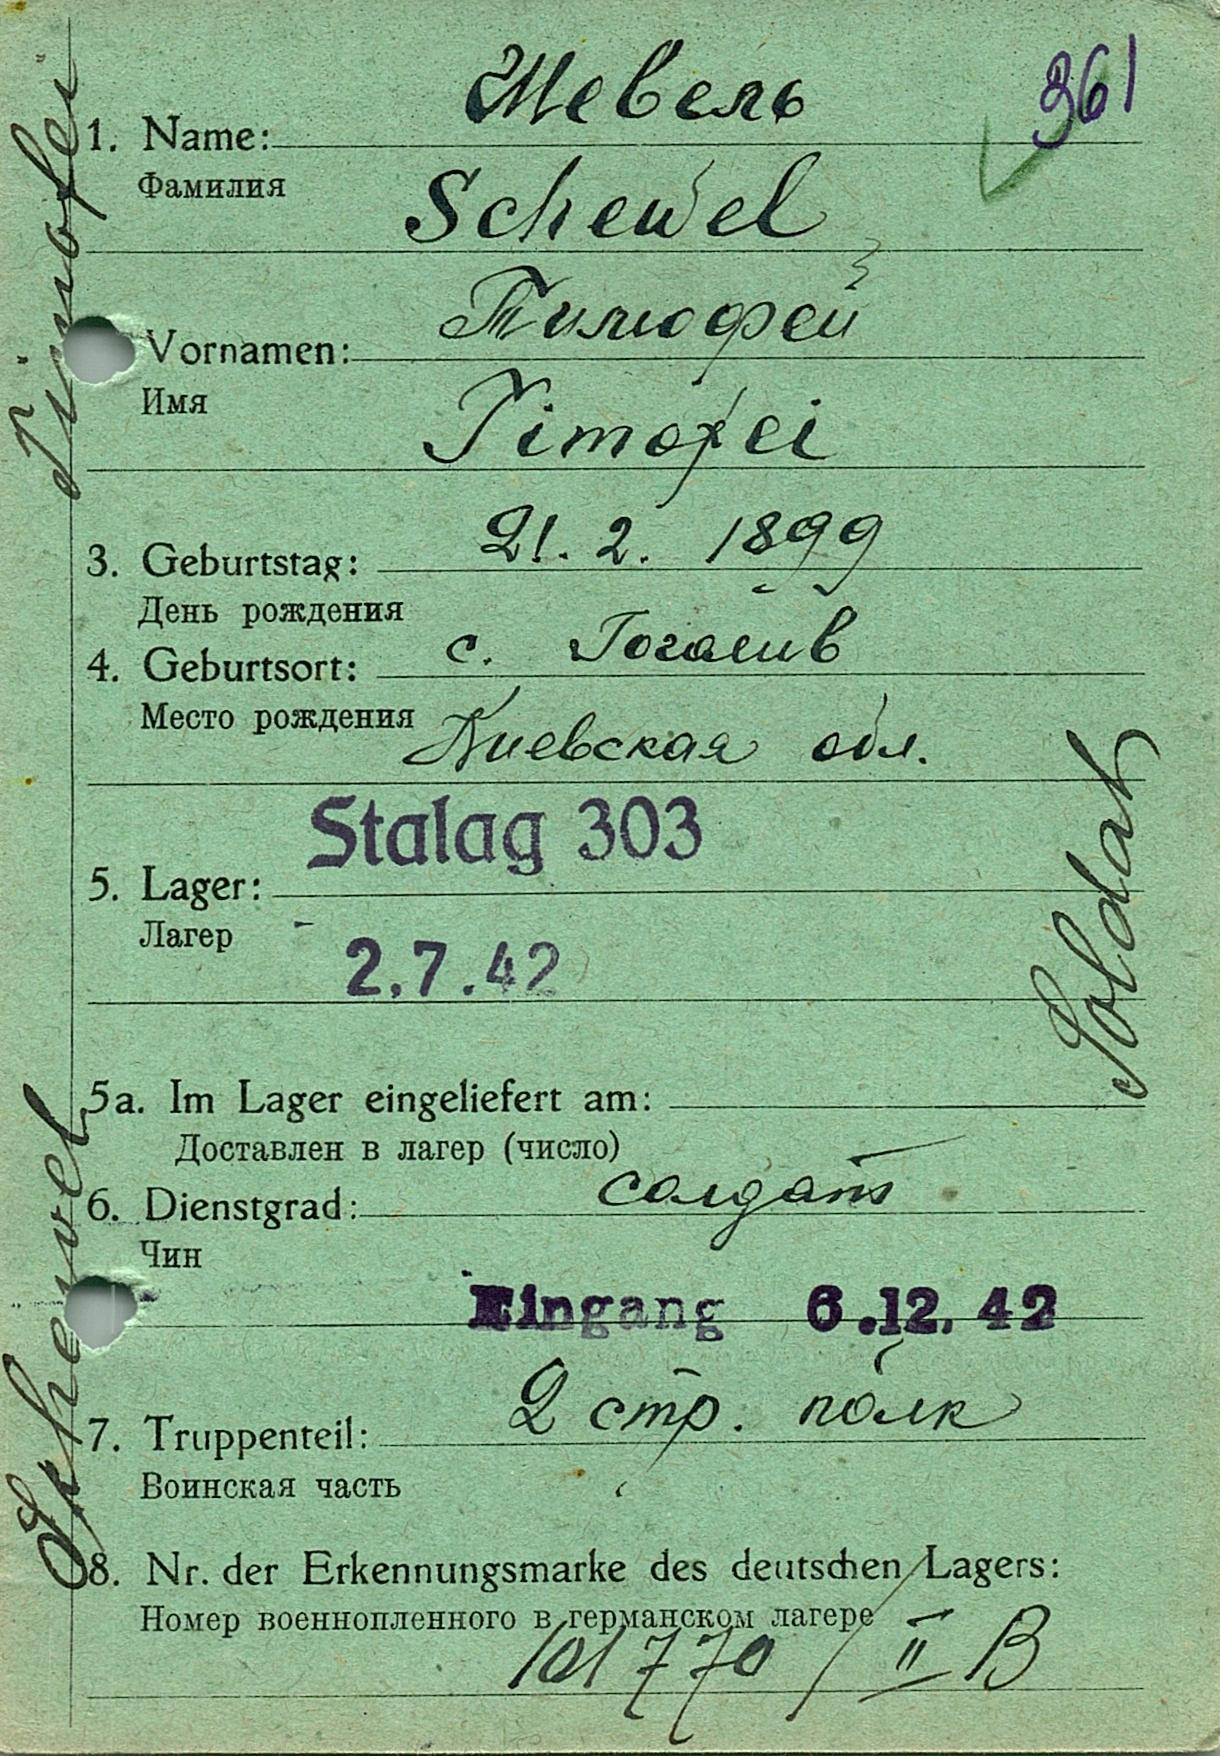 361
Шевель
1. Name:
Фамилия
Schewel
Тимофей
Vornamen:
Имя
Timofei
21. 2. 1899
3. Geburtstag:
День рождения
с. Гоголив
4. Geburtsort:
Место рождения
Киевская обл.
Stalag 303
5. Lager:
Лагер
2.7.42
5a. Im Lager eingeliefert am:
Доставлен в лагер (число)
солдат
6. Dienstgrad:
Чин
Eingang 6.12.42
2 стр. полк
7. Truppenteil:
Воинская часть
8. Nr. der Erkennungsmarke des deutschen Lagers:
Номер военнопленного в германском лагере
101770 / II B
Schewel Timofei
Soldat